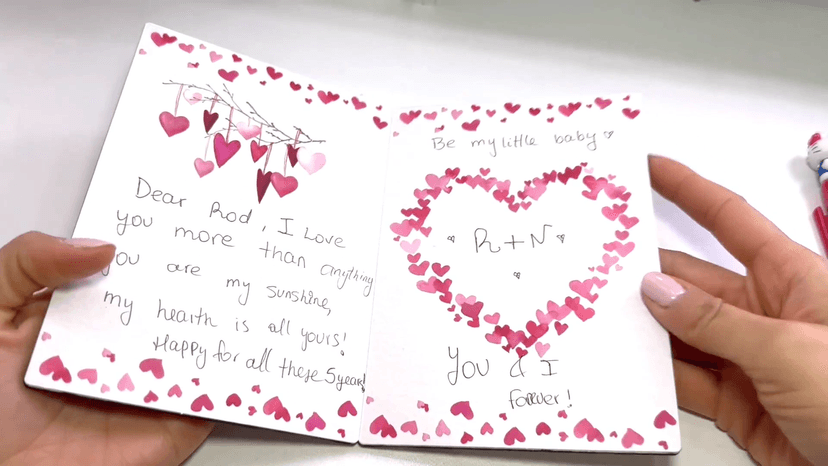 Dear Rod, I Love
you more than anything
you are my sunshine,
my hearth is all yours!
Happy for all these 5 years!
Be my little baby
R+N
You & I
forever!